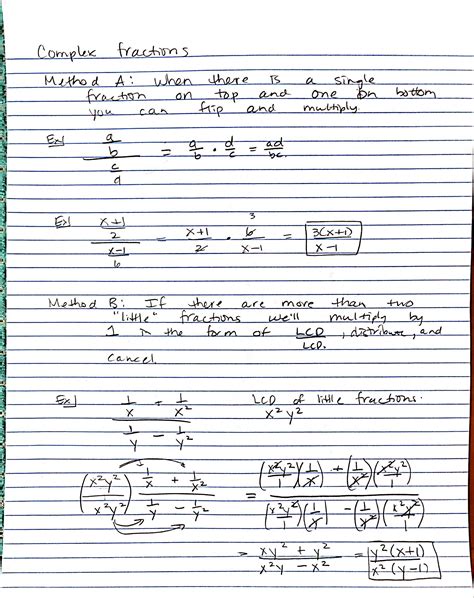 Complex fractions
Method A: When there is a single
fraction on top and one on bottom
you can flip and multiply.
Ex] (a/b)/(c/d) = a/b · d/c = ad/bc
Ex] ((x+1)/2)/((x-1)/6) = (x+1)/2 · 6/(x-1) = 3(x+1)/(x-1)
3
Method B: If there are more than two
"little" fractions we'll multiply by
1 in the form of LCD/LCD, distribute, and
cancel.
Ex] (1/x + 1/x²)/(1/y - 1/y²) LCD of little fractions.
x²y²
(x²y²/x²y²) (1/x + 1/x²)/(1/y - 1/y²) = ((x²y²/1)(1/x) + (1/x²)(x²y²/1))/((x²y²/1)(1/y) - (1/y²)(x²y²/1))
= (xy² + y²)/(x²y - x²) = y²(x+1)/x²(y-1)